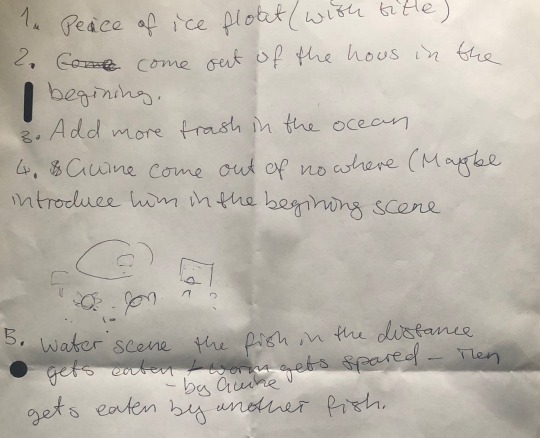 1. Peice of ice flobt (with title)
2. Come come out of the hous in the
begining.
3. Add more trash in the ocean
4. Gwine come out of nowhere (Maybe
introduce him in the begining scene
5. Water scene the fish in the distance
gets eaten + worm gets spared – Then
– by Gwine
gets eaten by another fish.